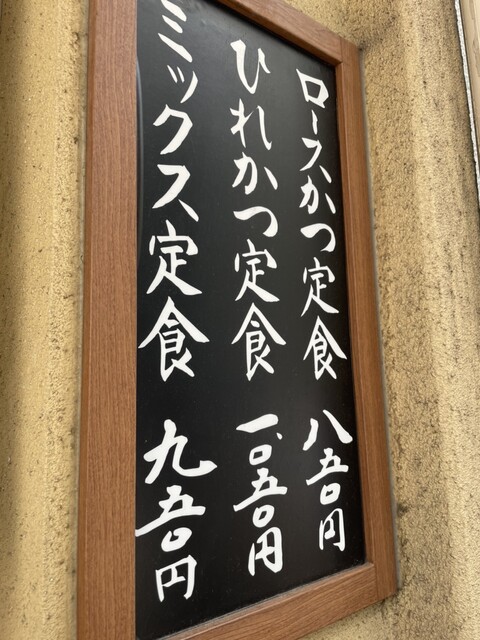 ロースかつ定食 八五〇円
ひれかつ定食 一、〇五〇円
ミックス定食 九五〇円